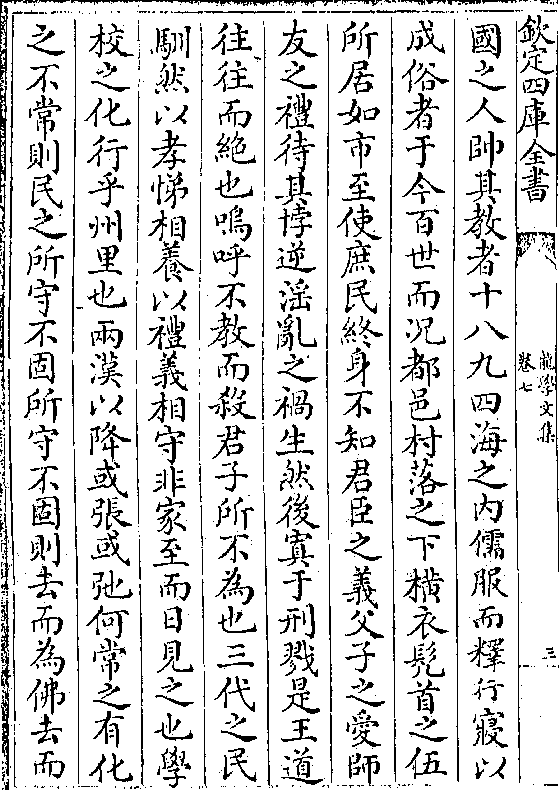 欽定四庫全書
龍學文集
卷七
三
國之人帥其教者十八九四海之内儒服而釋行寖以
成俗者于今百世而况都邑村落之下横衣髠首之伍
所居如市至使庶民終身不知君臣之義父子之愛師
友之禮待其悖逆滛亂之禍生然後寘于刑戮是王道
往往而絶也嗚呼不教而殺君子所不為也三代之民
馴然以孝悌相養以禮義相守非家至而日見之也學
校之化行乎州里也兩漢以降或張或弛何常之有化
之不常則民之所守不固所守不固則去而為佛去而